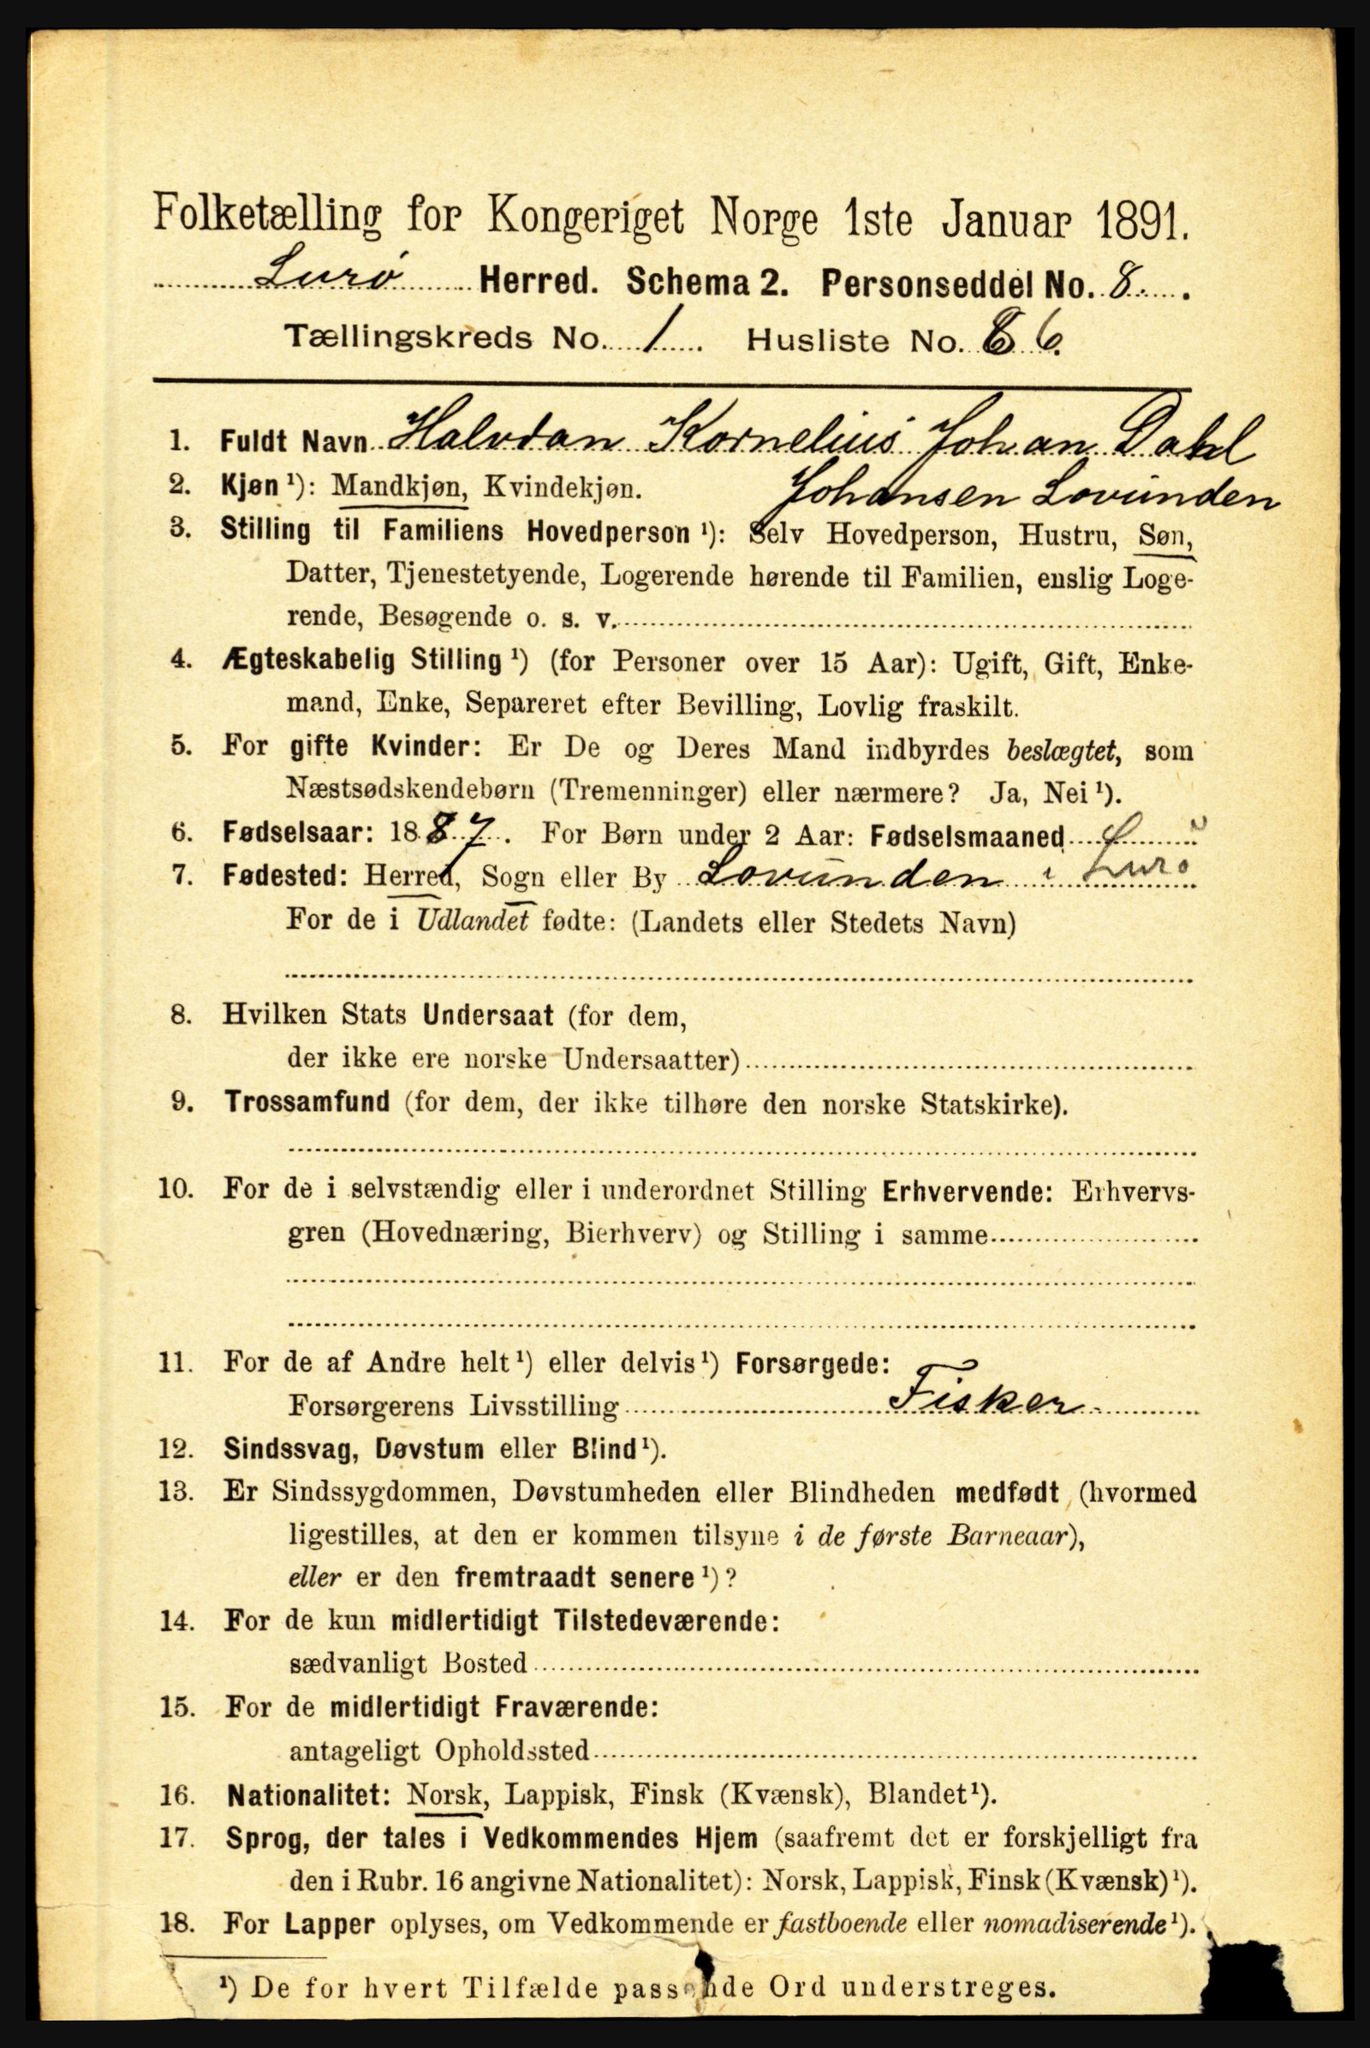 Folketælling for Kongeriget Norge 1ste Januar 1891.
Lurø Herred. Schema 2. Personseddel No. 8.
Tællingskreds No. 1 Husliste No. 6.
1. Fuldt Navn Halvdan Kornelius Johan Dahl
Johansen Lovunden
2. Kjøn ¹): Mandkjøn, Kvindekjøn.
3. Stilling til Familiens Hovedperson ¹): Selv Hovedperson, Hustru, Søn,
Datter, Tjenestetyende, Logerende hørende til Familien, enslig Loge-
rende, Besøgende o. s. v.
4. Ægteskabelig Stilling ¹) (for Personer over 15 Aar): Ugift, Gift, Enke-
mand, Enke, Separeret efter Bevilling, Lovlig fraskilt.
5. For gifte Kvinder: Er De og Deres Mand indbyrdes beslægtet, som
Næstsødskendebørn (Tremenninger) eller nærmere? Ja, Nei ¹).
6. Fødselsaar: 1887. For Børn under 2 Aar: Fødselsmaaned
7. Fødested: Herred, Sogn eller By Lovunden i Lurø
For de i Udlandet fødte: (Landets eller Stedets Navn)
8. Hvilken Stats Undersaat (for dem,
der ikke ere norske Undersaatter)
9. Trossamfund (for dem, der ikke tilhøre den norske Statskirke).
10. For de i selvstændig eller i underordnet Stilling Erhvervende: Erhvervs-
gren (Hovednæring, Bierhverv) og Stilling i samme
11. For de af Andre helt ¹) eller delvis ¹) Forsørgede:
Forsørgerens Livsstilling Fisker
12. Sindssvag, Døvstum eller Blind ¹).
13. Er Sindssygdommen, Døvstumheden eller Blindheden medfødt (hvormed
ligestilles, at den er kommen tilsyne i de første Barneaar),
eller er den fremtraadt senere ¹)?
14. For de kun midlertidigt Tilstedeværende:
sædvanligt Bosted
15. For de midlertidigt Fraværende:
antageligt Opholdssted
16. Nationalitet: Norsk, Lappisk, Finsk (Kvænsk), Blandet ¹).
17. Sprog, der tales i Vedkommendes Hjem (saafremt det er forskjelligt fra
den i Rubr. 16 angivne Nationalitet): Norsk, Lappisk, Finsk (Kvænsk) ¹).
18. For Lapper oplyses, om Vedkommende er fastboende eller nomadiserende ¹).
¹) De for hvert Tilfælde passende Ord understreges.